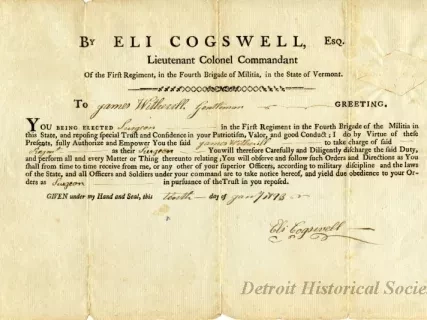 BY ELI COGSWELL, ESQ.
Lieutenant Colonel Commandant
Of the First Regiment, in the Fourth Brigade of Militia, in the State of Vermont.
To James Witherell, Gentleman GREETING.
YOU BEING ELECTED Surgeon in the First Regiment in the Fourth Brigade of Militia in
this State, and reposing special Trust and Confidence in your Patriotism, Valor, and good Conduct; I do by Virtue of these
Presents, fully Authorize and Empower You the said James Witherell to take charge of said
Regmt as their Surgeon You will therefore Carefully and Diligently discharge the said Duty,
and perform all and every Matter or Thing thereunto relating; You will observe and follow such Orders and Directions as You
shall from time to time receive from me, or any other of your Superior Officers, according to military discipline and the laws
of the State, and all Officers and Soldiers under your command are to take notice hereof, and yield due obedience to your Or-
ders as Surgeon in pursuance of the Trust in you reposed.
GIVEN under my Hand and Seal, this tenth day of
Eli Cogswell
Detroit Historical Socie